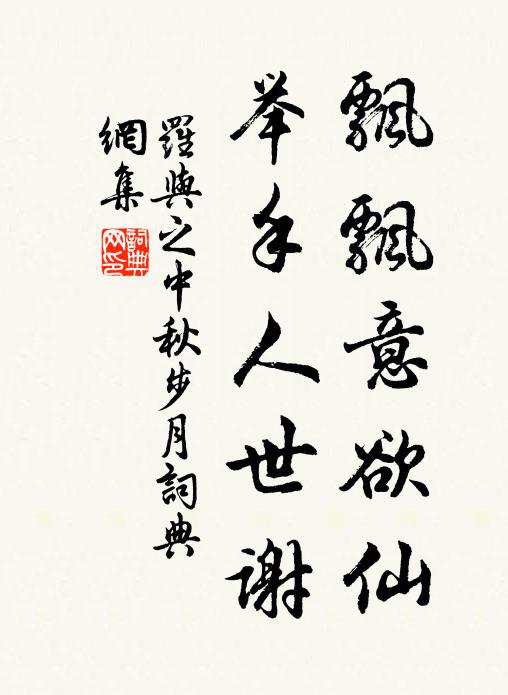 飄飄意欲仙
举手人世谢
羅與之中秋步月詞典
網集
詞典
网印